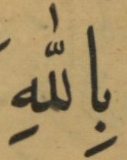 بِاللّٰهِ